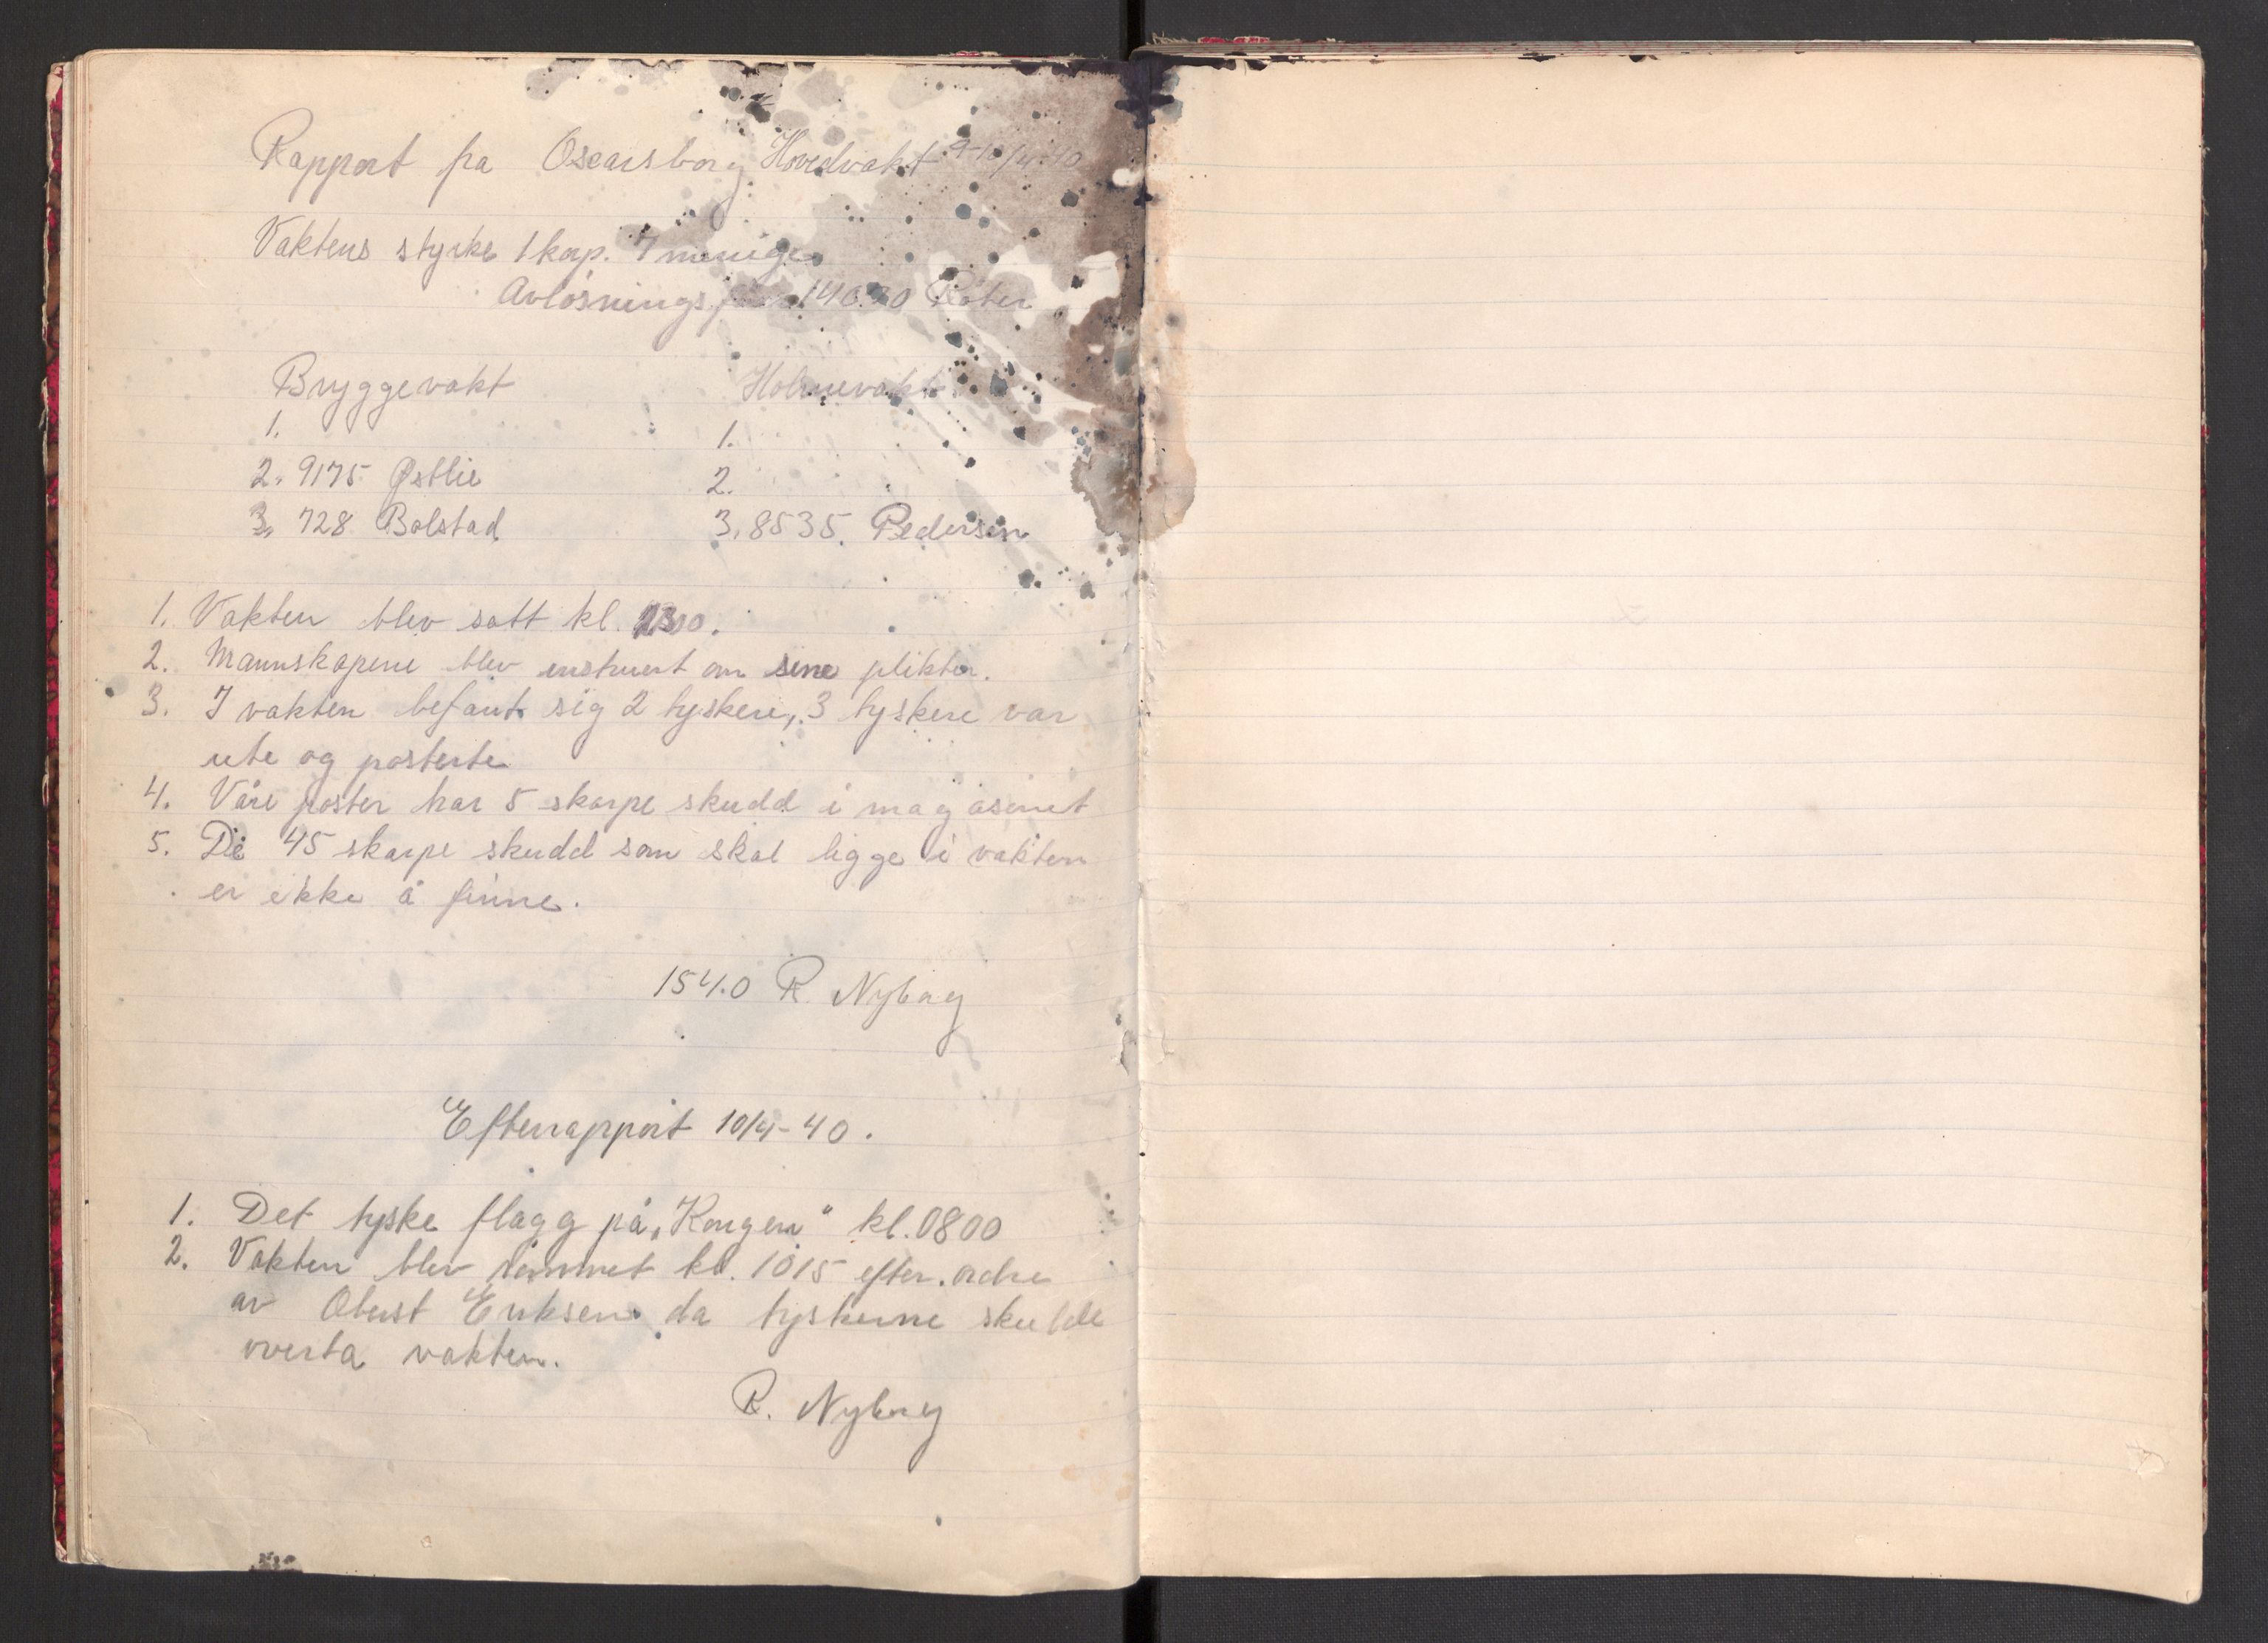 Rapport fra Oscarsborg Hovedvakt 9-10/4-40
Vaktens styrke 1 korp. 7 menige
Avløsnings
Bryggevakt Holmevakt
1. 1.
2. 9175 Østlie 2.
3. 728 Bolstad 3. 8535. Pedersen
1. Vakten blev satt kl. 1300.
2. Mannskapene blev instruert om sine plikter.
3. I vakten befant sig 2 tyskere, 3 tyskere var
ute og posterte
4. Våre poster har 5 skarpe skudd i magasinet
5. De 45 skarpe skudd som skal ligge i vakten
er ikke å finne.
1540 R. Nyborg
Efterrapport 10/4-40.
1. Det tyske flagg på „Kongen" kl. 0800
2. Vakten blev rømmet kl. 1015 efter ordre
av Oberst Eriksen da tyskerne skulde
overta vakten.
R. Nyborg